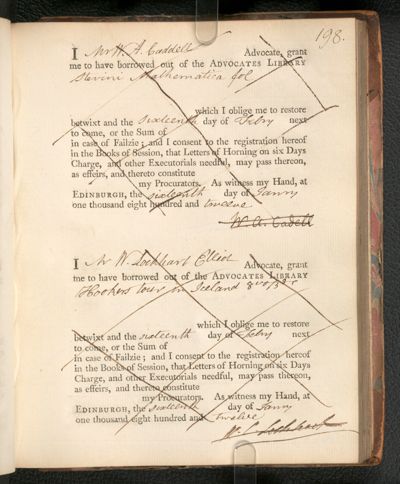 198.
I Mr W. A. Caddell Advocate, grant
me to have borrowed out of the ADVOCATES LIBRARY
Stevini Mathematica fol
which I oblige me to restore
betwixt and the sixteenth day of Febry next
to come, or the Sum of
in case of Failzie; and I consent to the registration hereof
in the Books of Session, that Letters of Horning on six Days
Charge, and other Executorials needful, may pass thereon,
as effeirs, and thereto constitute
my Procurators. As witness my Hand, at
EDINBURGH, the sixteenth day of Janry
one thousand eight hundred and twelve
W. A. Cadell
I Mr W. Lockhart Elliot Advocate, grant
me to have borrowed out of the ADVOCATES LIBRARY
Hookers tour in Iceland 8vo
which I oblige me to restore
betwixt and the sixteenth day of Febry next
to come, or the Sum of
in case of Failzie; and I consent to the registration hereof
in the Books of Session, that Letters of Horning on six Days
Charge, and other Executorials needful, may pass thereon,
as effeirs, and thereto constitute
my Procurators. As witness my Hand, at
EDINBURGH, the sixteenth day of Janry
one thousand eight hundred and twelve
W. E. Lockhart